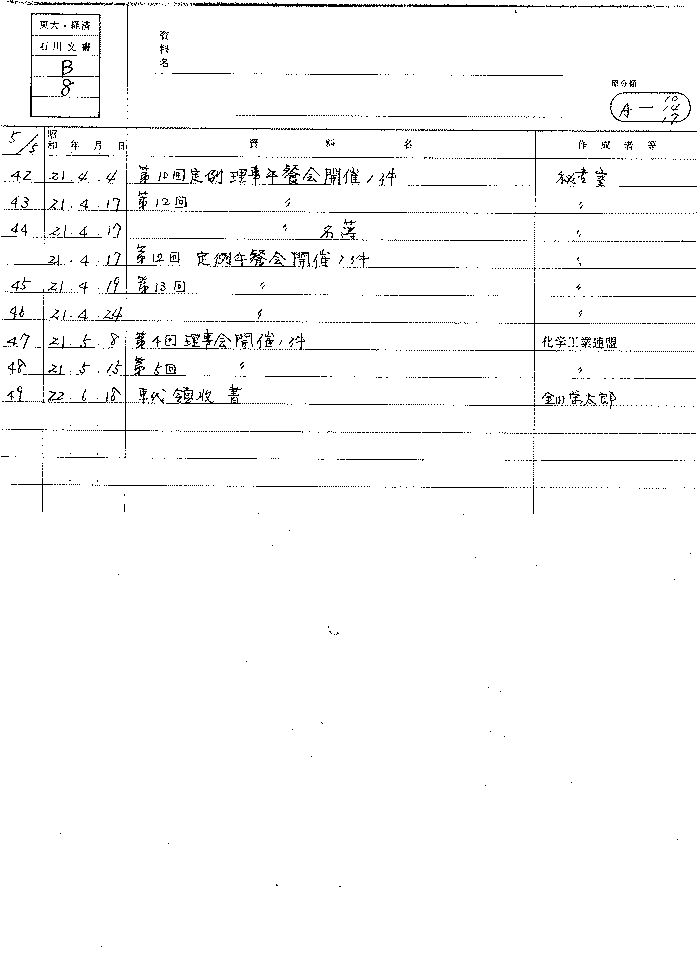 東大・経済
石川文書
B
8
資料名
原分類
A — 10 14 17
5/5 昭和 年 月 日 資 料 名 作 成 者 等
42 21. 4. 4 第10回定例理事午餐会開催ノ件 秘書室
43 21. 4. 17 第12回 〃 〃
44 21. 4. 17 〃 名簿 〃
21. 4. 17 第12回 定例午餐会開催ノ件 〃
45 21. 4. 19 第13回 〃 〃
46 21. 4. 24 〃 〃
47 21. 5. 8 第4回理事会開催ノ件 化学工業連盟
48 21. 5. 15 第5回 〃 〃
49 22. 6. 18 代領収書 金田栄太郎